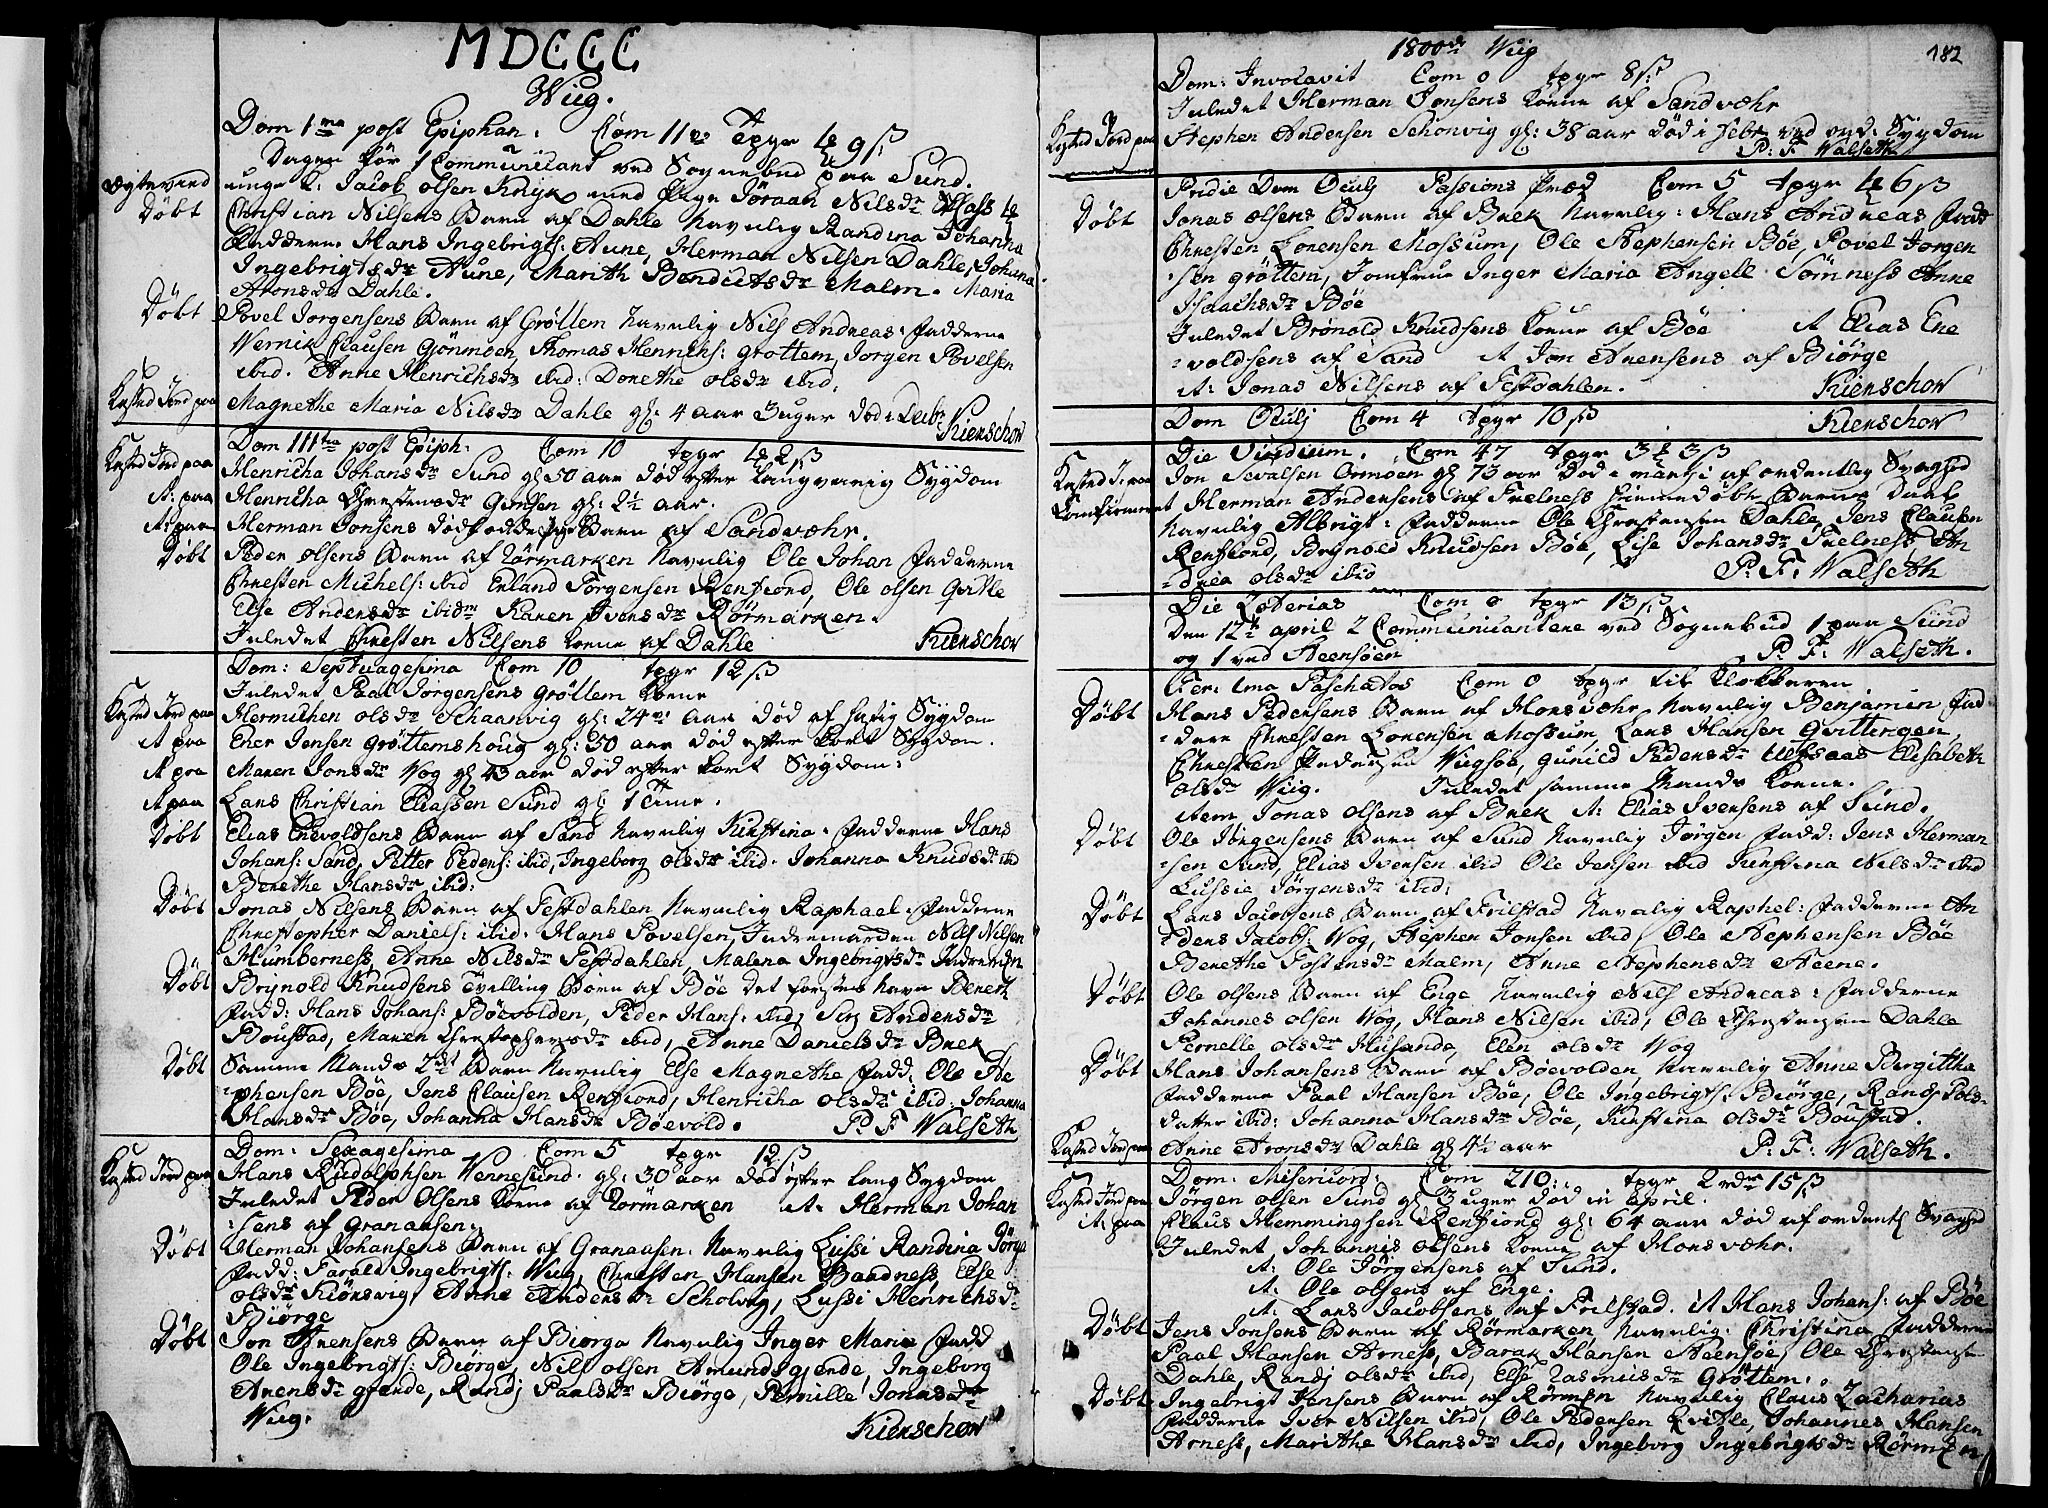 MDCCC
Wiig.
Dom 1ma post Epiphan: Com 11 Tpgr 9 ß
Dagen før 1 Communicant ved Sognebud paa Sund.
Ægteviid unge K: Jacob Olsen med Pige Jøraan Nilsdr
Døbt Christian Nilsens Barn af Dahle Navnlig Randina Johanna
Fadderne Hans Ingebrigts: Aune, Herman Nilsen Dahle, Johanna
Ingebrigtsdr Aune, Marith Bendictsdr Malm. Maria
Aronsdr Dahle.
Døbt Povel Jørgensens Barn af Grøttem Navnlig Nils Andreas: Fadderne
Wernik Clausen Gönmoen, Thomas Henrichs: Grottem, Jørgen Povelsen
ibid. Anne Henrichsdr ibid: Dorethe olsdr ibid.
Kasted Jord paa Magnethe Maria Nilsdr Dahle gl: 4 aar 3 uger død:
Kierschow
Dom IIItia post Epiph: Com 10 tpgr 2 ß
Kasted Jord paa Henricha Johansdr Sund gl: 50 aar død efter langvarig Sygdom
It: paa Henricha Chrestensdr Gimsen gl: 2½ aar.
It: paa Herman Jonsens dødfødde Barn af Sandværr.
Døbt Peder olsens Barn af Rörmarken Navnlig Ole Johan Fadderne
Chresten Michels: ibid Erland Torgensen Rensfiord, Ole olsen Qvitle
Else Andersdr ibidm Karen Iversdr Rörmarken.
Inledet Chresten Nilsens Kone af Dahle Kierschow
Dom: Septuagesima Com 10 tpgr 12 ß
Inledet Paal Jörgensens Grøttem Kone
Kasted Jord paa Hermichen olsdr Schaanvig gl: 24 aar død af hastig Sygdom
It paa Ener Jensen Grøttemshoug gl: 50 aar død efter kort Sygdom.
It paa Maren Jonsdr Vog gl 43 aar død efter kort Sygdom:
It paa Lars Christian Eliassen Sund gl: 1 Time.
Døbt Elias Enevoldsens Barn af Sand Navnlig Kirstina: Fadderne Hans
Johans: Sand, Petter Peders: ibid, Ingeborg olsdr ibid. Johanna Knudsdr ibid
Berethe Hansdr ibid:
Døbt Jonas Nilsens Barn af Testdahlen Navnlig Raphael: Fadderne
Christopher Daniels: ibid: Hans Povelsen, Indremarken Nils Nilsen
Humberness, Anne Nilsdr Testdahlen, Malena Ingebrigtsdr
Døbt Brynold Knudsens Tvilling Barn af Böe det førstes Navn Bereth
Fadd: Hans Johans: Böevolden, Peder Hans: ibid, Siri Andersdr
Boustad, Maren Chrestophersdr ibid, Anne Danielsdr Brek
Døbt Samme Mands 2det Barn Navnlig Else Magnethe Fadd: Ole Ste
=phensen Böe, Jens Clausen Rensfiord, Henricha olsdr ibid: Johanna
Hansdr Böe, Johanna Hansdr Böevold. P: F Walseth
Dom: Sexagesima Com 5 tpgr 12 ß
Kasted Jord paa Hans Rudolphsen Vennesund gl: 30 aar død efter lang Sygdom
Inledet Peder Olsens Kone af Rörmarken It: Herman Johan
:sens af Granaasen.
Døbt Herman Johansens Barn af Granaasen: Navnlig Lussi Randina
Fadd: Farald Ingebrigts: Wiig, Chresten Hansen Bardness, Else
olsdr Kiönsvig, Anne Andersdr Scholvig, Lussi Henrichsdr
Biörge
Døbt Jon Arensens Barn af Biörge Navnlig Inger Maria Fadd
Ole Ingebrigts: Biörge, Nils olsen Amundsgierde, Ingeborg
Arensdr gierde, Randj Paalsdr Biörge, Pernille Jonasdr
Wiig.
Kierschow
1800de Wiig 182
Dom: Invocavit Com 0 tpgr 8 ß
Inledet Herman Jonsens Kone af Sandværr
Kasted Jord paa Stephen Andersen Schonvig gl: 38 aar død i Febr ved Sygdom
P: F Walseth
Pridie Dom Oculj Passions Præd Com 5 tpgr 6 ß
Døbt Jonas olsens Barn af Brek Navnlig: Hans Andreas Fadd
Chresten Lorensen Mossum, Ole Stephensen Böe, Povel Jorgen
:sen grøttem, Jomfrue Inger Maria Angell Sömness Anne
Isaachsdr Böe
Inledet Brönold Knudsens Kone af Böe It Elias Ene
=voldsens af Sand It Jon Arensens af Biörge
It: Jonas Nilsens af Testdahlen. Kierschow
Dom Oculj Com 4 tpgr 10 ß Kierschow
Die Viridium. Com 47 tpgr 3 ß
Kasted J: paa Jon Sevalsen Ormoen gl 73 aar død i martj af ordentlig Svaghed
Confirmeret Herman Andersens af Trelness hiemmedøbt Barns Daab
Navnlig Albrigt: Fadderne Ole Chrestensen Dahle, Jens Clausen
Rensfiord, Brynold Knudsen Böe, Lise Johansdr Trelness An
=drea olsdr ibid P: F: Walseth
Die Zoterias Com 0 tpgr 13 ß
Den 12te april 2 Communicantere ved Sognebud 1 paa Sund
og 1 ved Steensöen P: F: Walseth.
Fer: 1ma Paschatos Com 0 tpgr til Klokkeren
Døbt Hans Pedersens Barn af Horsværr Navnlig Benjamin Fad
=dere Chresten Lorensen Mossum, Lars Hansen Qvittingen,
Chresten Pedersen Wiigsöe, Gunild Pedersdr Elisabeth
olsdr Wiig. Inledet samme Mands Kone.
item Jonas olsens af Brek It: Elias Iversens af Sund.
Døbt Ole Jörgensens Barn af Sund Navnlig Jörgen Fadd: Jens Herman
=sen Sund, Elias Iversen ibid Ole Jensen ibid Kirstina Nilsdr ibid
Lussie Jörgensdr ibid.
Døbt Lars Jacobsens Barn af Frilstad Navnlig Raphel: Fadderne An
=ders Jacobs: Vog, Stephen Jonsen ibid, Ole Stephensen Böe
Berethe Tostensdr Malm, Anne Stephensdr Steene.
Døbt Ole olsens Barn af Enge Navnlig Nils Andreas: Fadderne
Johannes olsen Vog, Hans Nilsen ibid, Ole Chrestensen Dahle
Pernelle olsdr Husande, Elen olsdr Vog
Døbt Hans Johansens Barn af Böevolden Navnlig Anne Bergitha
Fadderne Paal Hansen Böe, Ole Ingebrigts: Biörge, Randj Pols=
datter ibid: Johanna Hansdr Böe, Kirstina olsdr Boustad.
Kasted Jord paa Anne Aronsdr Dahle gl 4½ aar P: F: Walseth.
Dom: Misericord: Com 210: tpgr 2 rdr 15 ß
Kasted Jord paa Jörgen olsen Sund gl 3 uger død in april.
It: paa Claus Hemmingsen Rensfiord gl: 64 aar død af ordentl Svaghed
Inledet Johannis olsens Kone af Horsværr.
It: Ole Jörgensens af Sund.
It: Ole olsens af Enge.
It: Lars Jacobsens af Frilstad. It Hans Johans: af Böe
Døbt Jens Jonsens Barn af Rörmarken Navnlig: Christina Fadderne
Paal Hansen Arness, Barak Hansen Steensöe, Ole Chrestensen
Dahle, Randj olsdr ibid, Else Rasmusdr Grøttem.
Døbt Ingebrigt Jensens Barn af Rörmen Navnlig Claus Zacharias
Fadderne Iver Nilsen ibid, Ole Pedersen Qvitle, Johannes Hansen
Arness, Marithe Hansdr ibid, Ingeborg Ingebrigtsdr Rörmen